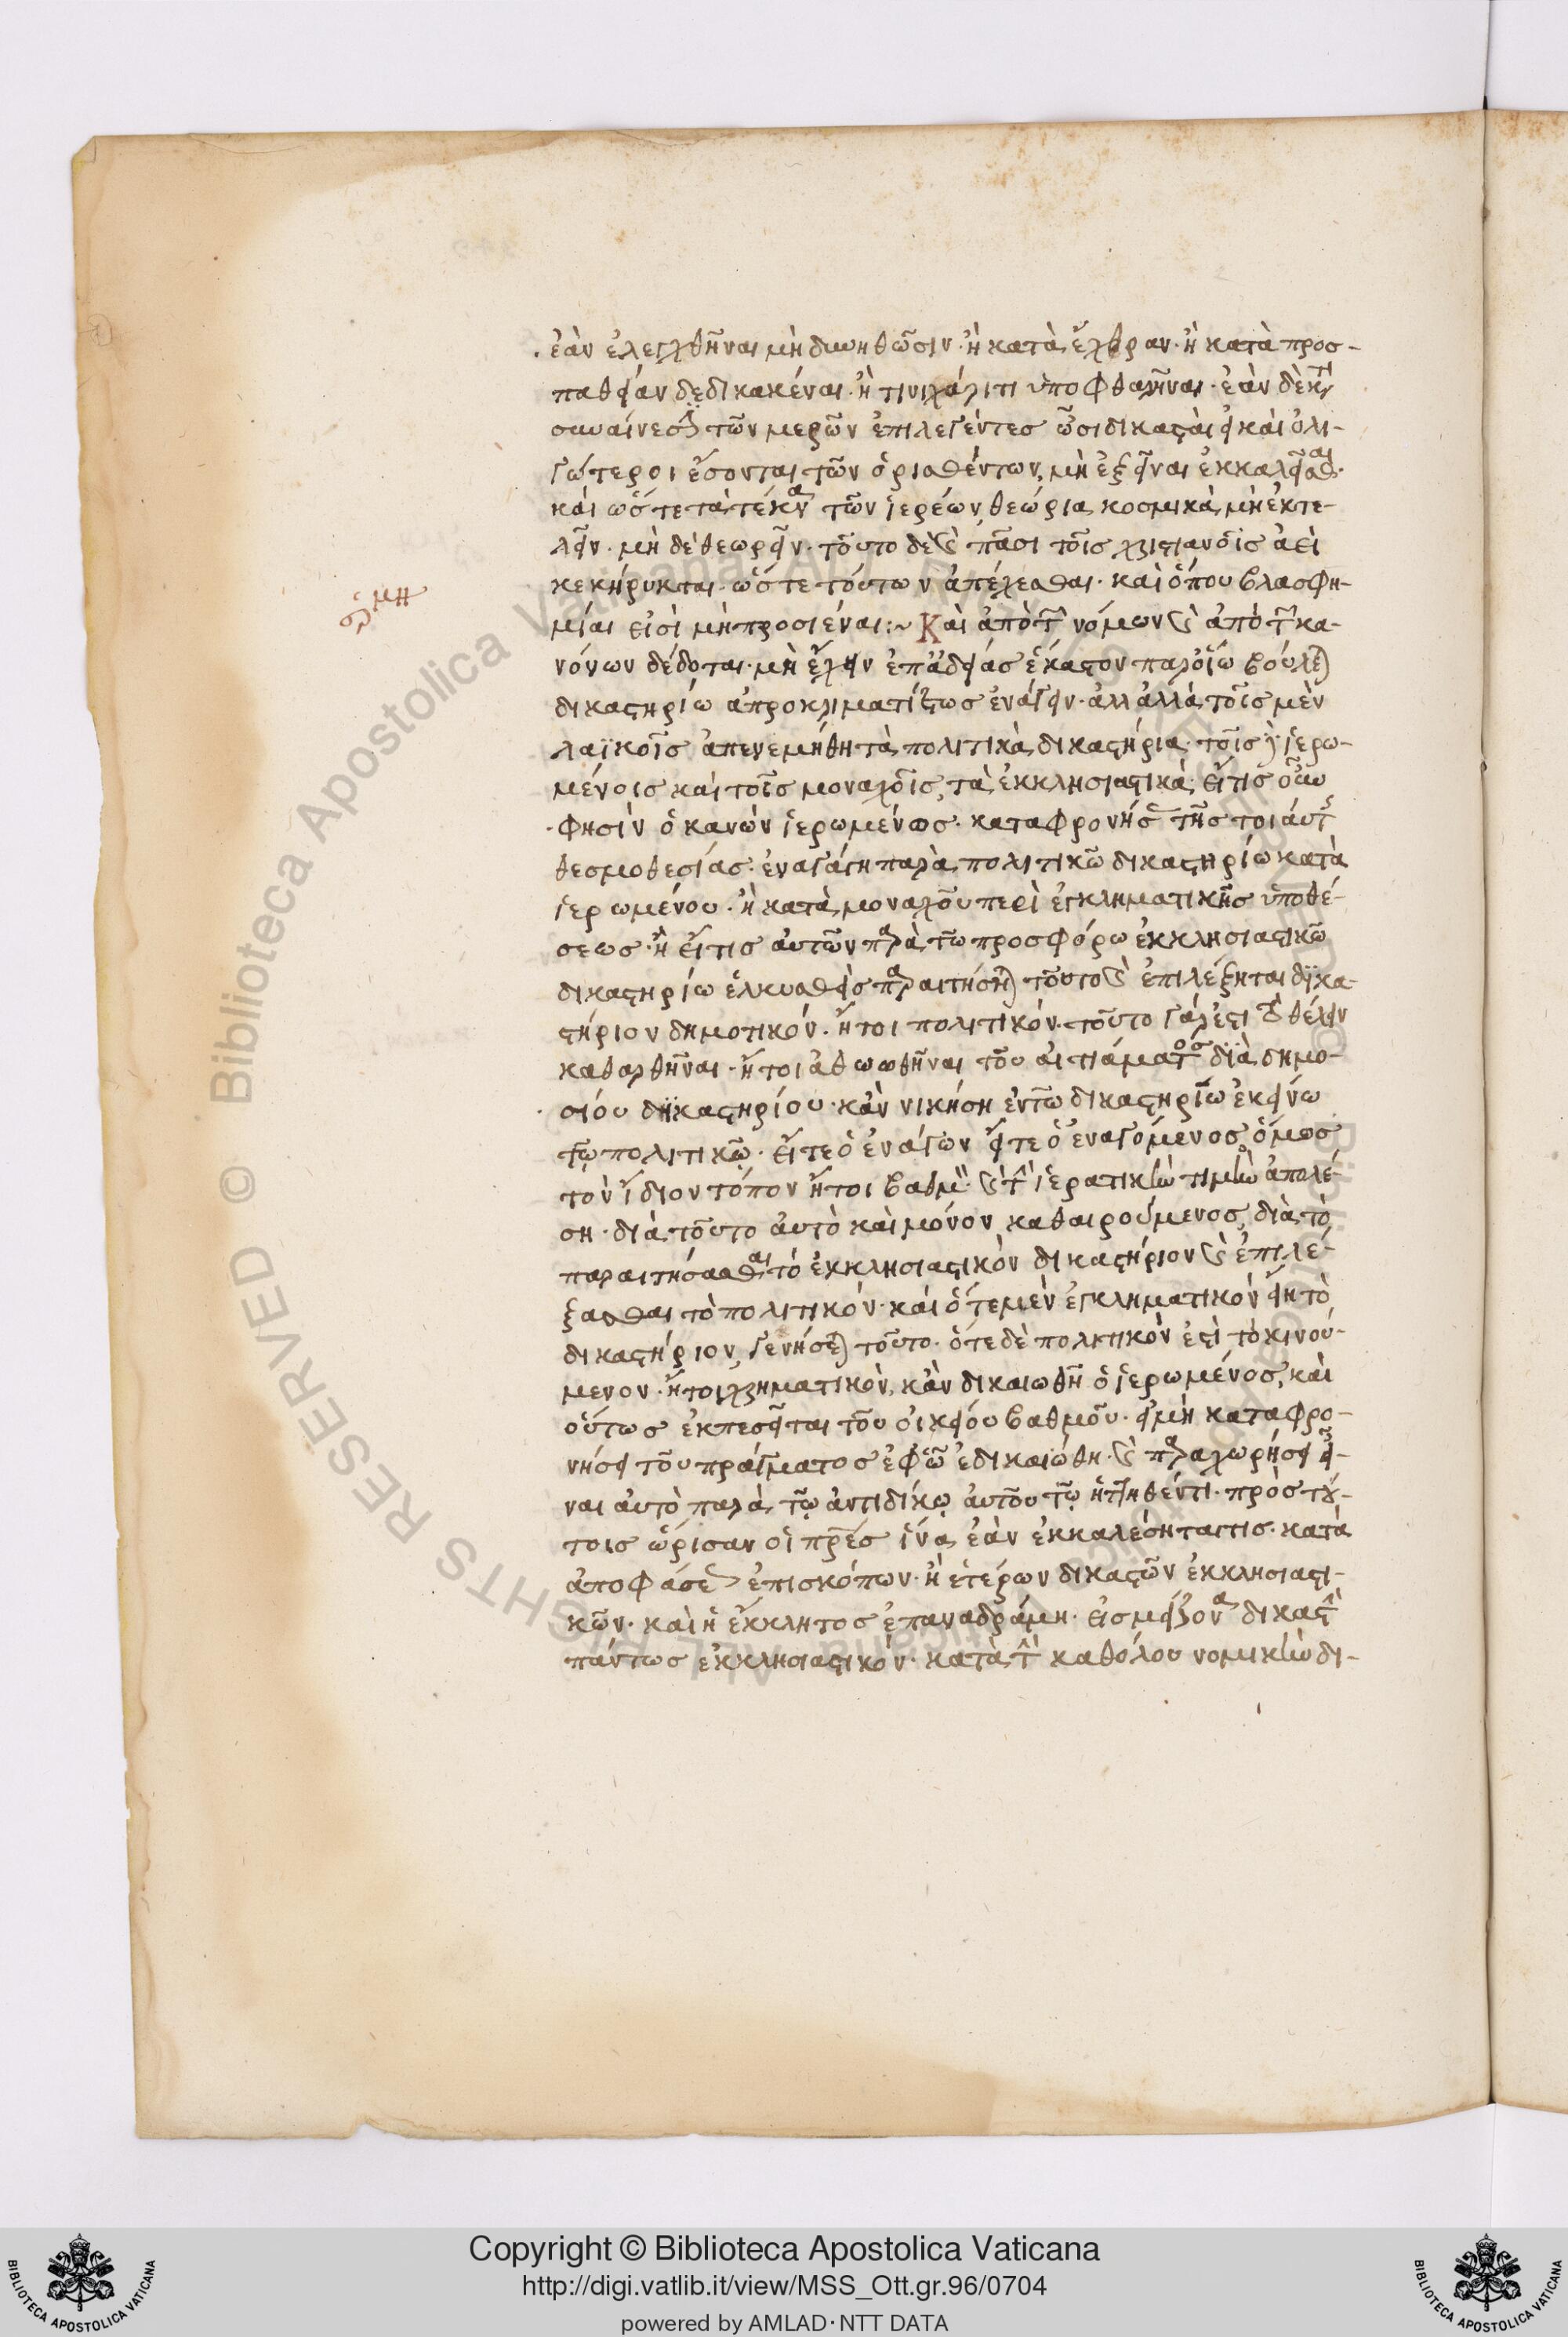 ἐὰν ἐλεγχθῆναι μὴ δυνηθῶσιν· ἢ κατὰ ἔχθραν· ἢ κατὰ προσ-
παθείαν δεδικακέναι· ἢ τινι χάριτι ὑποφθαρῆναι· ἐὰν δὲ κτ
συναίνεσιν τῶν μερῶν ἐπιλεγέντες ὦσι δικασταὶ εἰ καὶ ὀλι-
γώτεροι ἔσονται τῶν ὁρισθέντων, μὴ ἐξεῖναι ἐκκαλεῖσθαι·
καὶ ὥστε τὰ τέκνα τῶν ἱερέων θεώρια κοσμικὰ μὴ ἐκτε-
λεῖν· μὴ δὲ θεωρεῖν· τοῦτο δὲ καὶ πᾶσι τοῖς χριστιανοῖς ἀεὶ
κεκήρυκται· ὥστε τούτων ἀπέχεσθαι· καὶ ὅπου βλασφη-
μίαι εἰσὶ μὴ προσιέναι:~ Καὶ ἀπὸ τῶν νόμων καὶ ἀπὸ τῶν κα-
νόνων δέδοται· μὴ ἔχειν ἐπ' ἀδείας ἕκαστον παρ' οἵω βούλεται
δικαστηρίω ἀπροκριματίστως ἐνάγειν· ἀλλ' ἀλλὰ τοῖς μὲν
λαϊκοῖς ἀπενεμήθη τὰ πολιτικὰ δικαστήρια· τοῖς δὲ ἱερω-
μένοις καὶ τοῖς μοναχοῖς, τὰ ἐκκλησιαστικά· εἴτις οὖν
φησὶν ὁ κανὼν ἱερωμένος· καταφρονήσας τῆς τοιαύτης
θεσμοθεσίας· ἐναγάγη παρὰ πολιτικῶ δικαστηρίω κατὰ
ἱερωμένου· ἢ κατὰ μοναχοῦ περὶ ἐγκληματικῆς ὑποθέ-
σεως· ἢ εἴτις αὐτῶν παρὰ τῶ προσφόρω ἐκκλησιαστικῶ
δικαστηρίω ἑλκυσθεὶς παραιτήσηται τοῦτο καὶ ἐπιλέξηται δικα-
στήριον δημοτικόν· ἤτοι πολιτικόν· τοῦτο γάρ ἐστι τὸ θέλειν
καθαρθῆναι· ἤτοι ἀθωωθῆναι τοῦ αἰτιάματος διὰ δημο-
σίου δικαστηρίου· κἂν νικήση ἐν τῶ δικαστηρίω ἐκείνω
τῷ πολιτικῷ· εἴτε ὁ ἐνάγων εἴτε ὁ ἐναγόμενος, ὅμως
τὸν ἴδιον τόπον ἤτοι βαθμὸν· καὶ τὴν ἱερατικὴν τιμὴν ἀπολέ-
ση· διὰ τοῦτο αὐτὸ καὶ μόνον καθαιρούμενος, διὰ τὸ
παραιτήσασθαι τὸ ἐκκλησιαστικὸν δικαστήριον καὶ ἐπιλέ-
ξασθαι τὸ πολιτικόν· καὶ ὅτε μὲν ἐγκληματικὸν εἴη τὸ
δικαστήριον, γενήσεται τοῦτο· ὅτε δὲ πολιτικὸν ἐστὶ τὸ κινού-
μενον· ἤτοι χρηματικὸν, κἂν δικαιωθῆ ὁ ἱερωμένος, καὶ
οὕτως ἐκπεσεῖται τοῦ οἰκείου βαθμοῦ· εἰ μὴ καταφρο-
νήσει τοῦ πράγματος ἐφ' ὧ ἐδικαιώθη· καὶ παραχωρήσει εἶ-
ναι αὐτὸ παρὰ τῷ ἀντιδίκῳ αὐτοῦ τῷ ἡττηθέντι· πρὸς τού-
τοις ὥρισαν οἱ πρες ἵνα ἐὰν ἐκκαλέσηταί τις· κατὰ
ἀποφάσεων ἐπισκόπων· ἢ ἑτέρων δικαστῶν ἐκκλησιαστι-
κῶν· καὶ ἡ ἔκκλητος ἐπαναδράμη· εἰς μείζονα δικαστὴν
πάντως ἐκκλησιαστικόν· κατὰ τὴν καθόλου νομικὴν δι-
Copyright © Biblioteca Apostolica Vaticana
http://digi.vatlib.it/view/MSS_Ott.gr.96/0704
powered by AMLAD·NTT DATA